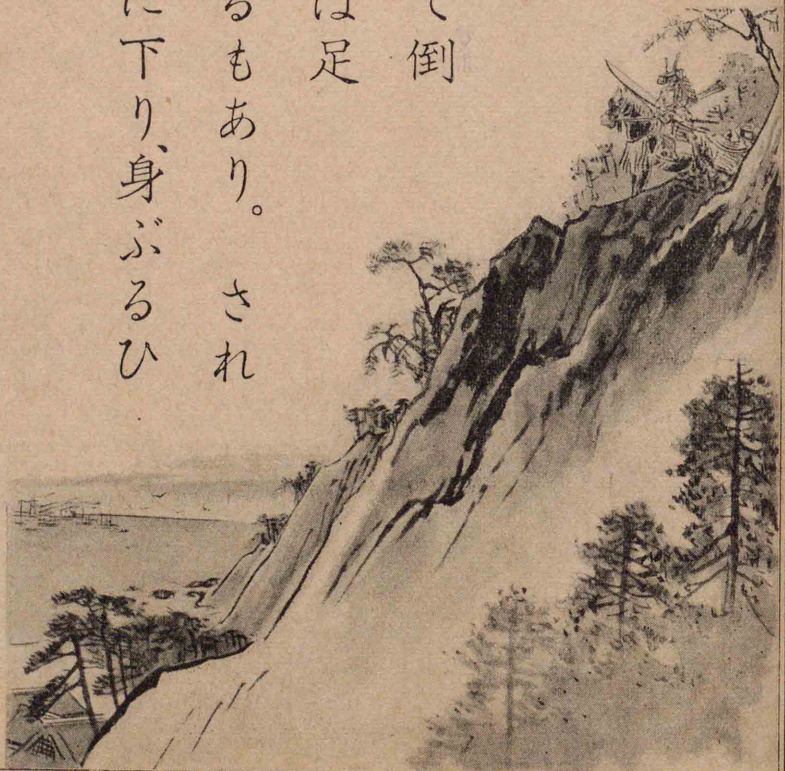 て倒
は足
るもあり。 され
に下り、身ぶるひ